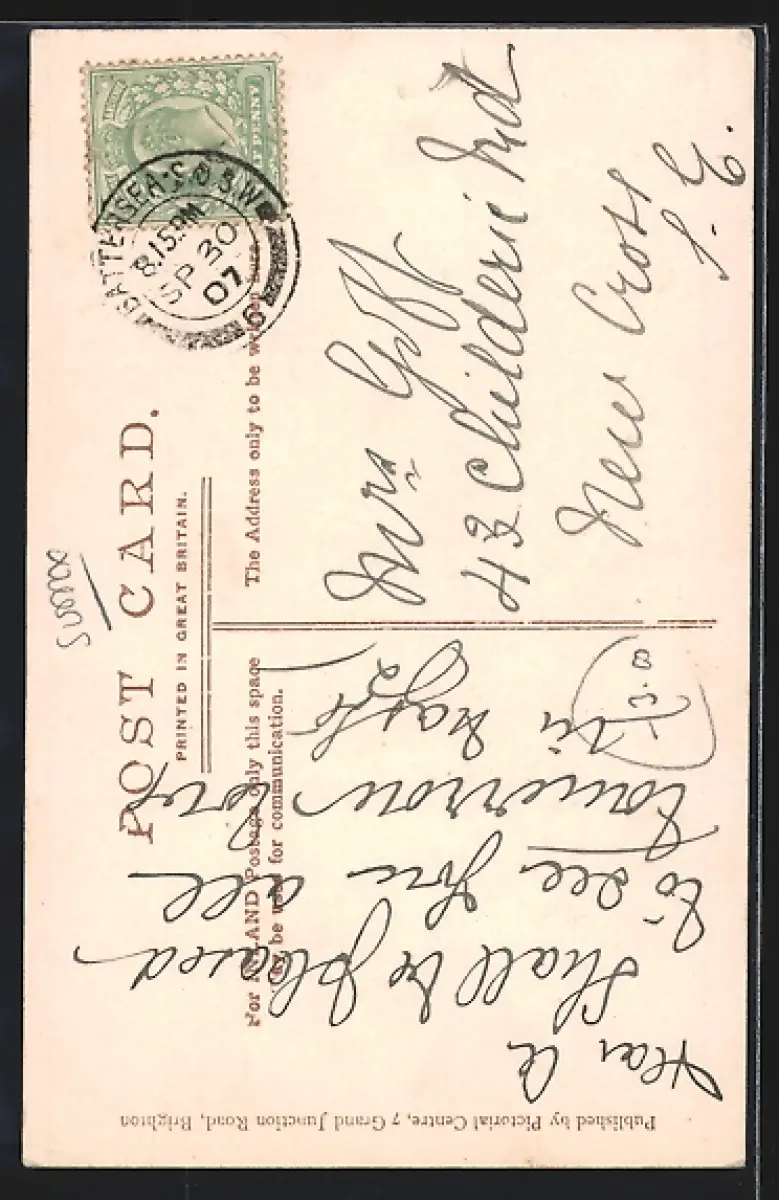 POST CARD.
PRINTED IN GREAT BRITAIN.
For INLAND Postage only this space
may be used for communication.
The Address only to be written here.
BATTERSEA S.O. S.W.
8.15 PM
SP 30
07
HALFPENNY
Mrs
43 Childeric Rd
New Cross
S. E.
Dear A
Shall be pleased
to see you all
tomorrow
in haste
Published by Pictorial Centre, 7 Grand Junction Road, Brighton